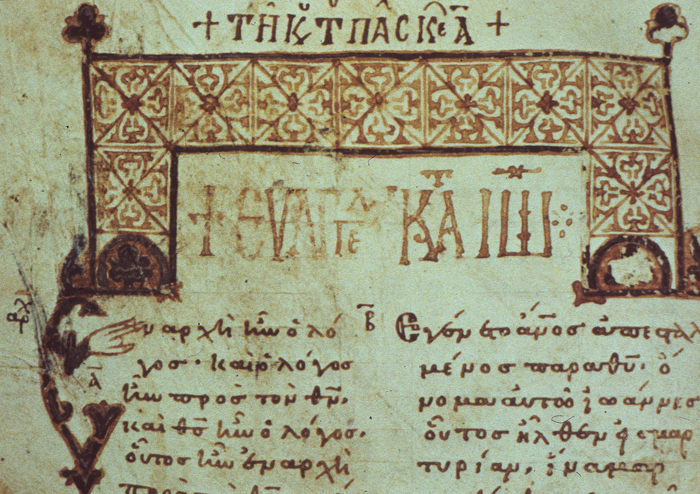 + ΤΗ ΚΥ Τ ΠΑϹ +
+ ΕΥΑΓΓΕΛ ΚΑΤ ΙΩ
Ἐναρχῆ ἦν ὁ λό
γος· καὶ ὁ λόγος
ἦν πρὸς τὸν θ̅ν̅,
καὶ θ̅ς̅ ἦν ὁ λόγος.
οὗτος ἦν ἐν ἀρχῆ
β̅
Ἐγένετο ἄ̅ν̅ο̅ς̅ ἀπεσταλ
μένος παρα θ̅υ̅· ὄ
νομα αὐτοῦ ἰωάννης
οὗτος ἦλθεν εἰς μαρ
τυρίαν, ἵνα μαρ